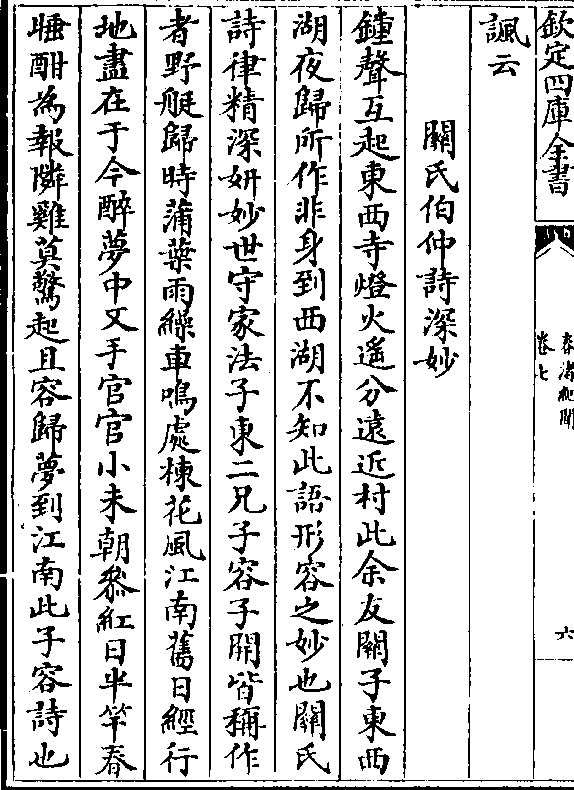 欽定四庫全書
春渚紀聞
卷七
六
諷云
關氏伯仲詩深妙
鐘聲互起東西寺燈火遙分遠近村此余友關子東西
湖夜歸所作非身到西湖不知此語形容之妙也關氏
詩律精深妍妙世守家法子東二兄子容子開皆稱作
者野艇歸時蒲葉雨繰車鳴處楝花風江南舊日經行
地盡在于今醉夢中又手官官小未朝叅紅日半竿春
睡酣為報隣雞莫驚起且容歸夢到江南此子容詩也